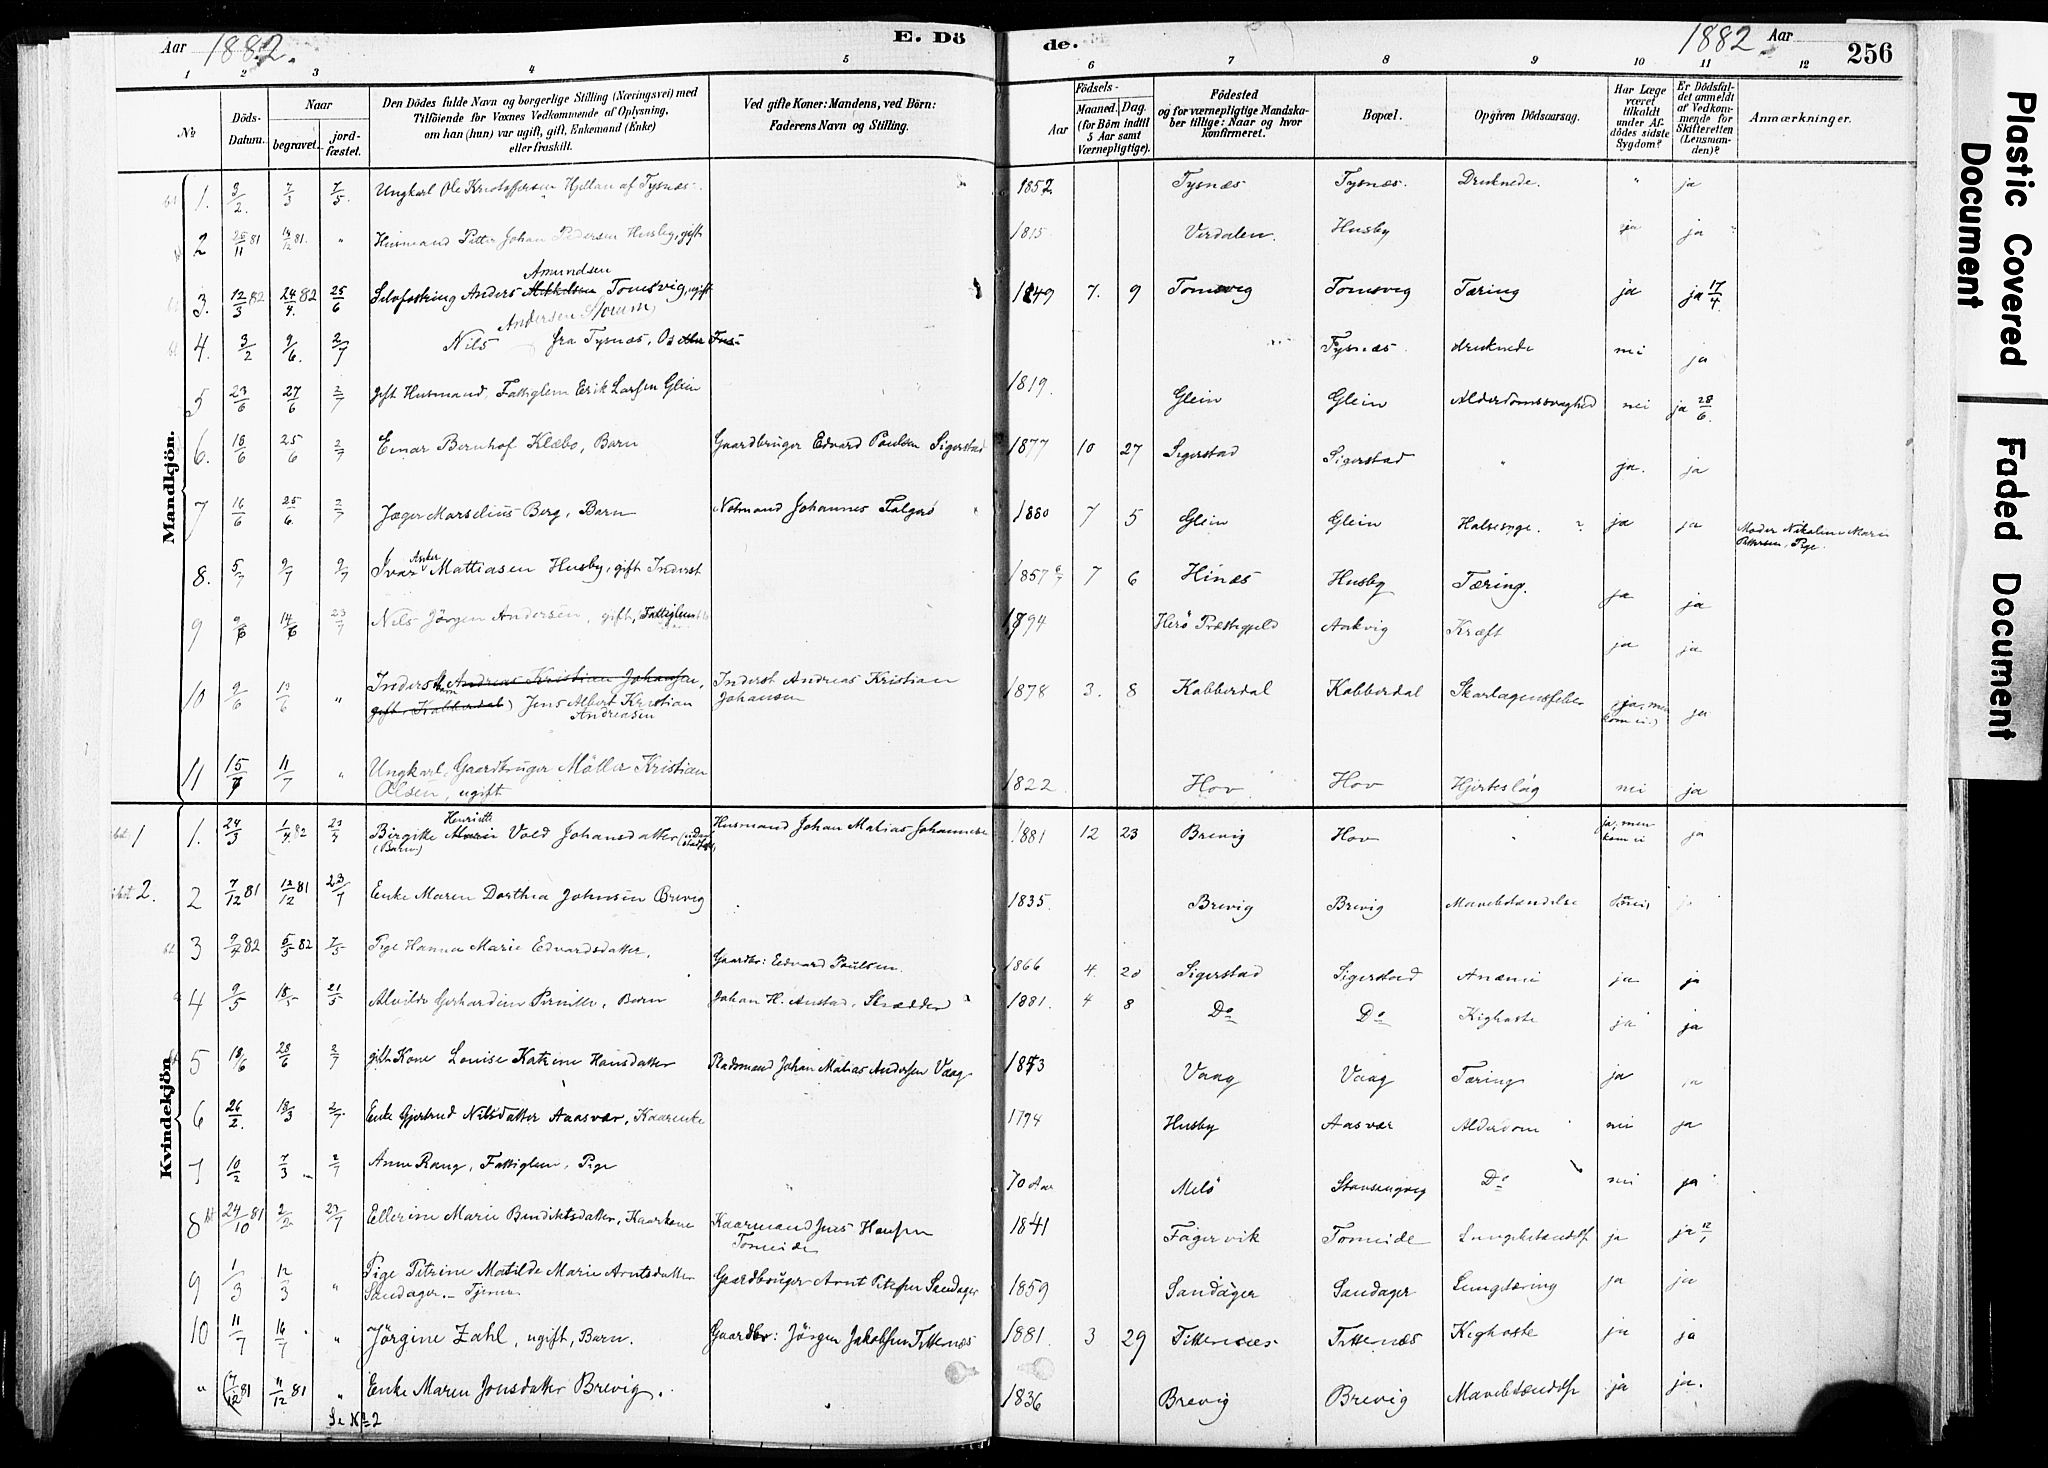 Aar 1882. E. Dö
de. 1882 Aar 256
1 2 3 4 5 6 7 8 9 10 11 12
№ Döds-Datum. Naar begravet. jord-fæstet. Den Dödes fulde Navn og borgerlige Stilling (Næringsvei) med Tilføiende for Voxnes Vedkommende af Oplysning, om han (hun) var ugift, gift, Enkemand (Enke) eller fraskilt. Ved gifte Koner: Mandens, ved Börn: Faderens Navn og Stilling. Aar Födsels- Maaned. Dag. (for Börn indtil 5 Aar samt Værnepligtige). Födested og for værnepligtige Mandskaber tillige: Naar og hvor konfirmeret. Bopæl. Opgiven Dödsaarsag. Har Læge været tilkaldt under Afdödes sidste Sygdom? Er Dödsfaldet anmeldt af Vedkommende for Skifteretten (Lensmanden)? Anmærkninger.
Mandkjön.
1. 3/2. 7/3 7/5. Ungkarl Ole Kristoffersen af Tysnes. 1852 Tysnæs Tysnæs. Druknede. " ja
2 25/11 81 14/12 81. " Husmand Petter Johan Pedersen Husby, gift 1815 Verdalen. Husby ja ja
3. 12/3 82 24/4. 82 25/6 Selvfostring Anders Amundsen Tomsvig, ugift 1849 7. 9 Tomsvig Tomsvig Tæring ja ja 17/4.
4. 3/2 9/6. 2/7 Nils Andersen fra Tysnæs, Tysnæs. druknede nei ja
5 23/6 27/6 2/7 gift Husmand, Fattiglem Erik Larsen Glein 1819. Glein Glein Alderdomssvaghed nei ja 28/6.
6. 18/6 25/6 2/7 Einar Bernhof Klæbo, Barn Gaardbruger Edvard Paulsen Sigerstad 1877 10 27 Sigerstad Sigerstad " ja. ja
7 16/6 25/6. 2/7 Jæger Marselius Berg, Barn Notmand Johannes Falgerö 1880 7 5 Glein Glein Halsesyge. ja ja Moder Nikoline Marie Pettersen, Pige.
8. 5/7 9/7 9/7 Ivar Mattiasen Husby, gift Inderst 1857 7 6 Hinæs Husby Tæring. ja ja
9 14/6 23/7 Nils Jörgen Andersen, gift, Fattiglem 1794 Herö Præstegjeld Aakvig Kræft ja ja
10 9/6 19/6 " Inderst Andreas Kristian Johansen, gift, Kabberdal) Jens Albert Kristian Andreasen Inderst Andreas Kristian Johansen 1878 3. 8 Kabberdal Kabberdal Skarlagensfeber ja, men kom ei.) ja
11 15/7 11/7 " Ungkarl, Gaardbruger Mölla Kristian Olsen, ugift 1822 Hov Hov Hjerteslag nei ja
Kvindekjön
1 1. 24/3 1/4. 82 23/4 Birgitte Henriette Vold Johansdatter (Barn) Husmand Johan Matias Johannesen 1881 12 23 Brevig Hov " ja, men kom ei ja
2. 2 7/12 81 12/12 81 23/4 Enke Maren Dorthea Johnsen Brevig 1835. Brevig Brevig Mavebetændelse
3 9/4 82 5/5 82 7/5 Pige Hanna Marie Edvardsdatter. Gaardbr: Edvard Paulsen. 1866 4. 20 Sigerstad Sigerstad Anæmi ja ja
4 9/5 18/5 21/5 Alvilde Gerhardine Pernille, Barn Johan H. Anstad, Skrædder 1881. 4 8 Do Do Kighoste ja ja
5 18/6 28/6 2/7 gift Kone Louise Katrine Hansdatter Pladsmand Johan Matias Andersen Vaag 1843 Vaag Vaag Tæring ja ja
6 26/2. 18/3 2/7. Enke Gjertrud Nilsdatter Aasvær, Kaarenke 1794 Husby Aasvær Alderdom nei ja
7 10/2 7/3 2/7 Anne Rang, Fattiglem, Pige 70 Aar Melö Do nei ja
8 24/10 81 2/2 23/4 Ellerine Marie Bendiktsdatter, Kaarkone Kaarmand Jens Hansen Tomeide 1841 Fagervik Tomeide Lungebetændelse ja ja 12/1
9 1/3 12/3 " Pige Petrine Matilde Marie Arntsdatter Sandager. Tjener Gaardbruger Arnt Petersen Sandager 1859 Sandager Sandager Lungetæring ja ja
10 11/7 16/7 " Jörgine Zahl, ugift, Barn. Gaardbr: Jörgen Jakobsen Titternæs 1881 3 29 Titternæs Titternæs Kighoste ja ja
" 7/12 81 11/12 81 " Enke Maren Jonsdatter Brevig. 1836 Brevig Brevig Mavebetændelse ja ja.
Se No 2
Plastic Covered Document
Faded Document